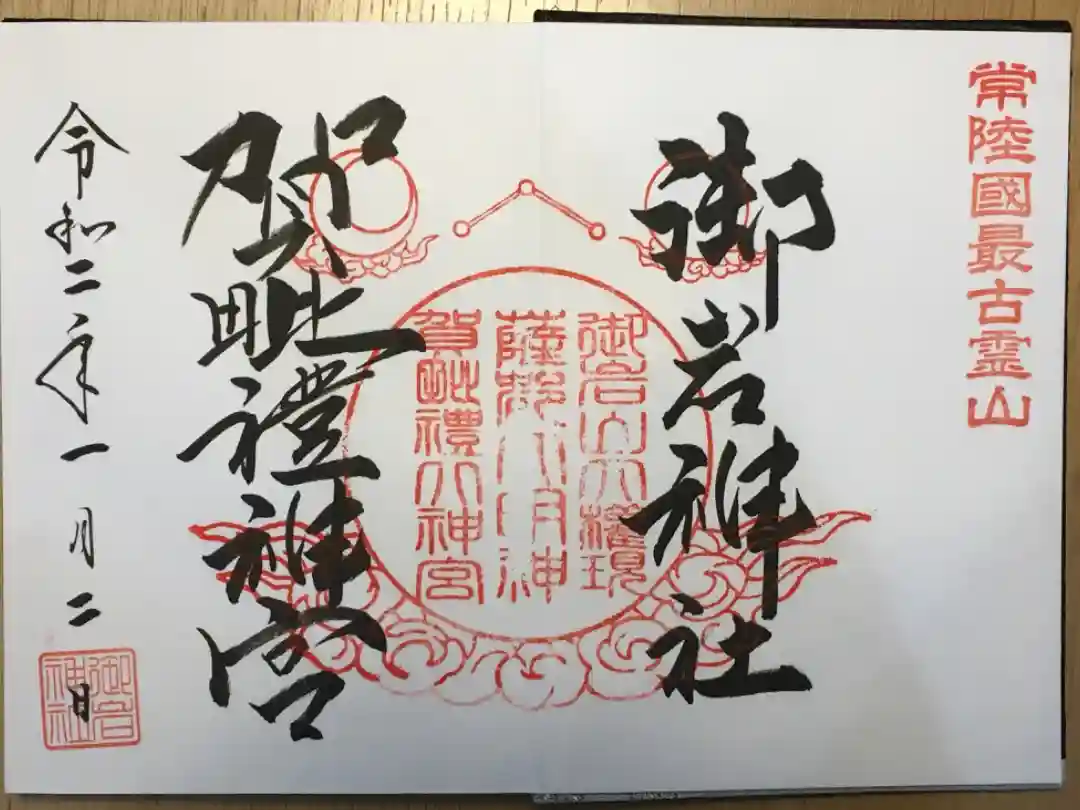 常陸國最古霊山
御岩神社
御岩山大権現
薩都神
賀毗禮神宮
賀毗禮神宮
令和二年一月二日
御岩神社